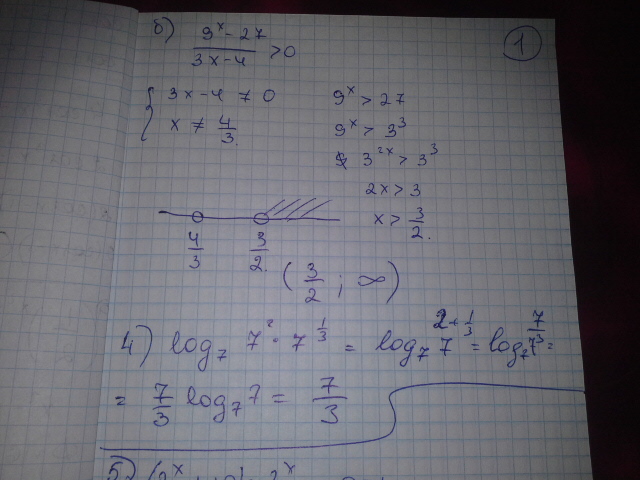 б) (9^x - 27)/(3x-4) > 0
1
{ 3x-4 ≠ 0
x ≠ 4/3.
9^x > 27
9^x > 3^3
3^2x > 3^3
2x > 3
x > 3/2.
4/3 3/2.
(3/2 ; ∞)
4) log₇ 7^2 · 7^(1/3) = log₇ 7^(2+1/3) = log₇ 7^(7/3) =
= 7/3 log₇ 7 = 7/3